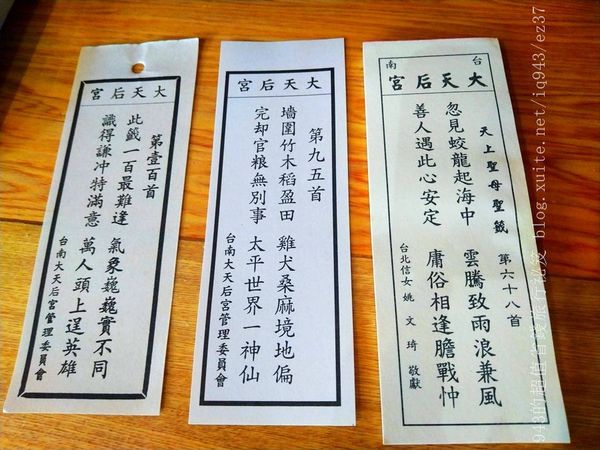 大天后宮
第壹百首
此籤一百最難逢 氣象巍巍實不同
識得謙冲特滿意 萬人頭上逞英雄
台南大天后宮管理委員會
大天后宮
第九五首
墻圍竹木稻盈田 雞犬桑麻境地偏
完却官粮無別事 太平世界一神仙
台南大天后宮管理委員會
台南
大天后宮
天上聖母聖籤 第六十八首
忽見蛟龍起海中 雲騰致雨浪兼風
善人遇此心安定 庸俗相逢膽戰忡
台北信女姚文琦敬獻
943的超值省錢旅行 blog.xuite.net/iq943/ez37